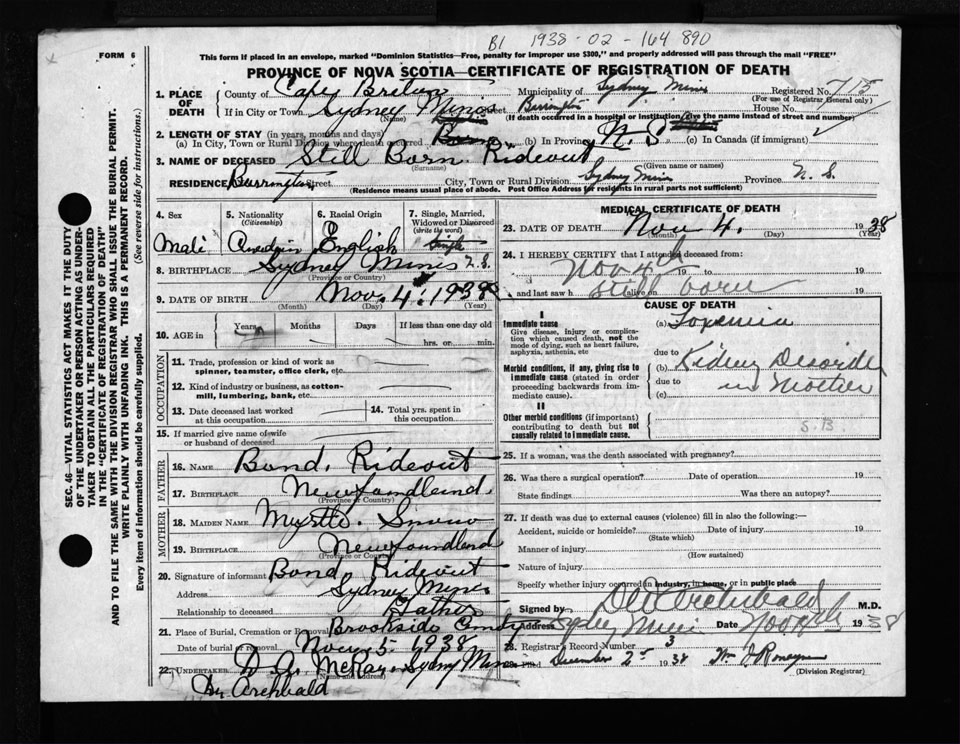 B1 1938-02-164 890
FORM 6
This form if placed in an envelope, marked "Dominion Statistics—Free, penalty for improper use $300," and properly addressed will pass through the mail "FREE"
PROVINCE OF NOVA SCOTIA—CERTIFICATE OF REGISTRATION OF DEATH
SEC. 46—VITAL STATISTICS ACT MAKES IT THE DUTY
OF THE UNDERTAKER OR PERSON ACTING AS UNDER-
TAKER TO OBTAIN ALL THE PARTICULARS REQUIRED
IN THE "CERTIFICATE OF REGISTRATION OF DEATH"
AND TO FILE THE SAME WITH THE DIVISION REGISTRAR WHO SHALL ISSUE THE BURIAL PERMIT.
WRITE PLAINLY WITH UNFADING INK. THIS IS A PERMANENT RECORD.
Every item of information should be carefully supplied. (See reverse side for instructions).
1. PLACE OF DEATH County of Cape Breton Municipality of Sydney Mines Registered No. 715
(For use of Registrar General only)
If in City or Town Sydney Mines Street Barrington House No.
(Name) (If death occurred in a hospital or institution, give the name instead of street and number)
2. LENGTH OF STAY (in years, months and days)
(a) In City, Town or Rural Division where death occurred (b) in Province N. S (c) in Canada (if immigrant)
3. NAME OF DECEASED Still Born Rideout
(Surname) (Given name or names)
RESIDENCE Barrington Street City, Town or Rural Division Sydney Mines Province N. S.
(Residence means usual place of abode. Post Office Address for residents in rural parts not sufficient)
4. Sex 5. Nationality (Citizenship) 6. Racial Origin 7. Single, Married, Widowed or Divorced (write the word)
Male English Single
8. BIRTHPLACE Sydney Mines N.S.
(Province or Country)
9. DATE OF BIRTH Nov. 4. 1938
(Month) (Day) (Year)
10. AGE in Years Months Days If less than one day old
hrs. or min.
OCCUPATION
11. Trade, profession or kind of work as spinner, teamster, office clerk, etc.
12. Kind of industry or business, as cotton-mill, lumbering, bank, etc.
13. Date deceased last worked at this occupation
14. Total yrs. spent in this occupation
15. If married give name of wife or husband of deceased
FATHER
16. NAME Bond. Rideout
17. BIRTHPLACE Newfoundland.
(Province or Country)
MOTHER
18. MAIDEN NAME Myrtle. Snow
19. BIRTHPLACE Newfoundland
(Province or Country)
20. Signature of informant Bond Rideout
Address Sydney Mines
Relationship to deceased Father
21. Place of Burial, Cremation or Removal Brookside Cmty
Date of burial or removal Nov. 5. 1938
22. UNDERTAKER D. A. McRay. Sydney Mines
(Name and Address)
Dr. Archbald
MEDICAL CERTIFICATE OF DEATH
23. DATE OF DEATH Nov 4. 1938
(Month) (Day) (Year)
24. I HEREBY CERTIFY that I attended deceased from:
Nov 4th 19 to 19
and last saw h alive on still born 19
CAUSE OF DEATH
I
Immediate cause (a) Toxemia
Give disease, injury or complication which caused death, not the mode of dying, such as heart failure, asphyxia, asthenia, etc
due to
Morbid conditions, if any, giving rise to immediate cause (stated in order proceeding backwards from immediate cause). (b) Kidney Disorder
due to in Mother
(c)
II
Other morbid conditions (if important) contributing to death but not causally related to immediate cause.
S.B.
25. If a woman, was the death associated with pregnancy?
26. Was there a surgical operation? Date of operation 19
State findings Was there an autopsy?
27. If death was due to external causes (violence) fill in also the following:—
Accident, suicide or homicide? Date of injury 19
(State which)
Manner of injury
(How sustained)
Nature of injury
Specify whether injury occurred in industry, in home, or in public place
Signed by Archibald M.D.
Address Sydney Mines Date Nov 1938
28. Registrar's Record Number 3
Filed December 2nd 1938
(Division Registrar)